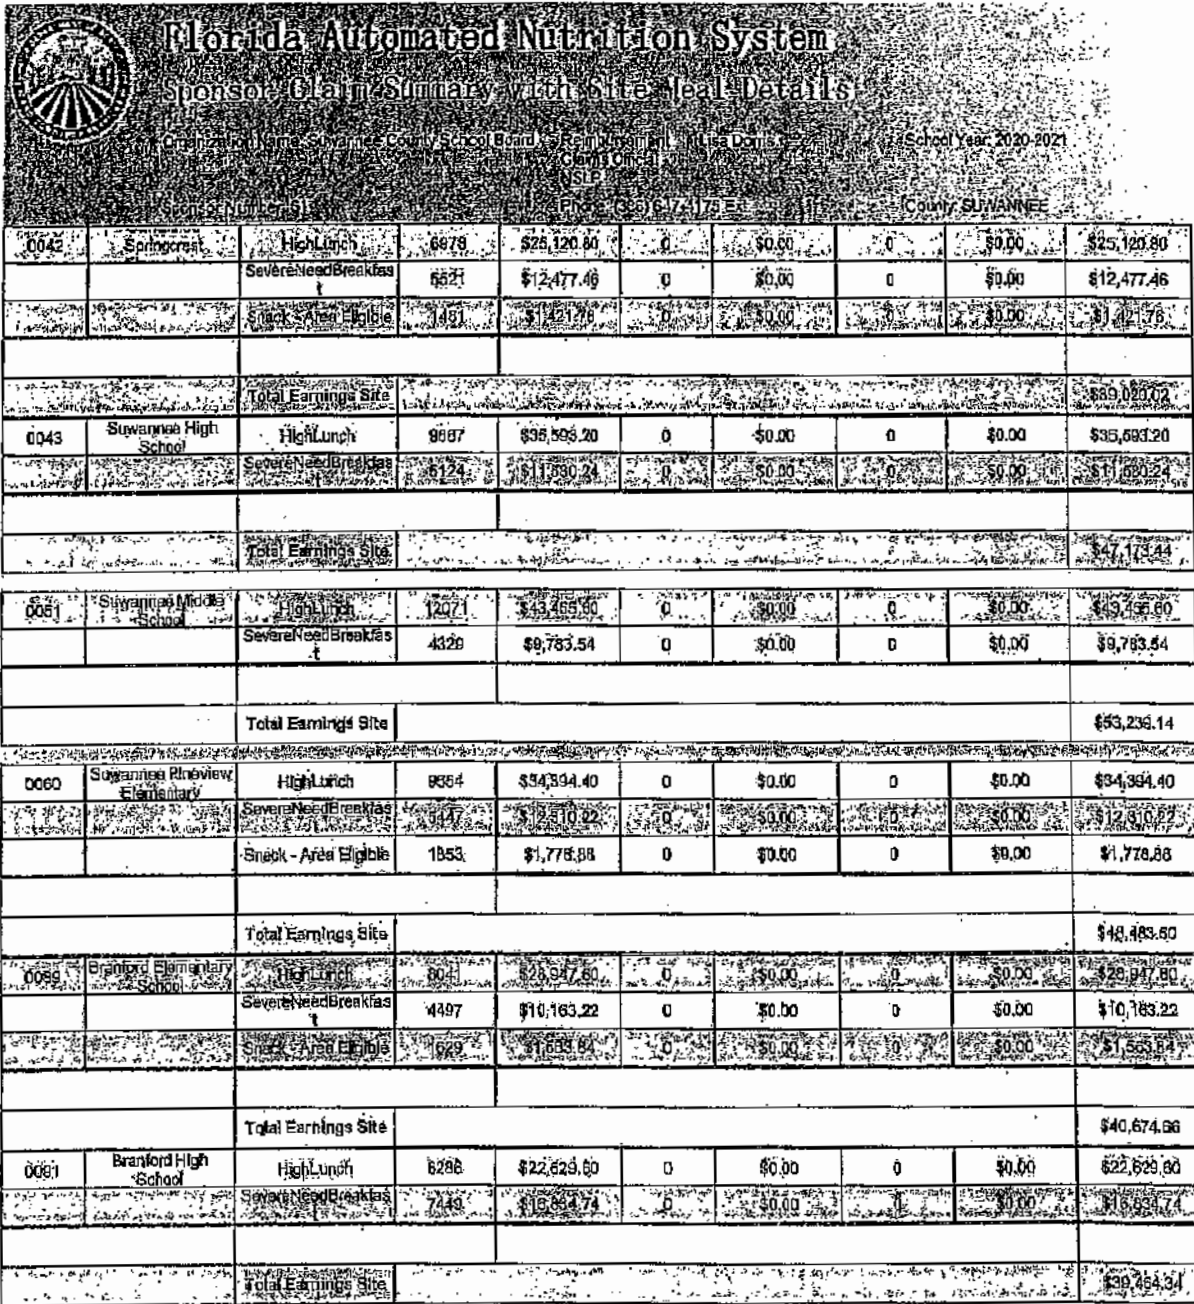 Florida Automated Nutrition System
Sponsor Claim Summary with Site Meal Details
Organization Name: Suwannee County School Board Reimbursement Lisa Dorris School Year: 2020-2021
Claims Official
NSLP
Sponsor Number: Phone: County: SUWANNEE
0042 Springcrest HighLunch 6978 $25,120.80 0 $0.00 0 $0.00 $25,120.80
SevereNeedBreakfas 5521 $12,477.46 0 $0.00 0 $0.00 $12,477.46
t
Snack - Area Eligible 1481 $1,421.76 0 $0.00 0 $0.00 $1,421.76
Total Earnings Site $39,020.02
0043 Suwannee High HighLunch 9887 $35,593.20 0 $0.00 0 $0.00 $35,593.20
School
SevereNeedBreakfas 5124 $11,580.24 0 $0.00 0 $0.00 $11,580.24
t
Total Earnings Site $47,173.44
0051 Suwannee Middle HighLunch 12071 $43,455.60 0 $0.00 0 $0.00 $43,455.60
School
SevereNeedBreakfas 4329 $9,783.54 0 $0.00 0 $0.00 $9,783.54
t
Total Earnings Site $53,239.14
0060 Suwannee Pineview HighLunch 9554 $34,394.40 0 $0.00 0 $0.00 $34,394.40
Elementary
SevereNeedBreakfas 5447 $12,310.22 0 $0.00 0 $0.00 $12,310.22
Snack - Area Eligible 1853 $1,778.88 0 $0.00 0 $0.00 $1,778.88
Total Earnings Site $48,483.50
Branford Elementary HighLunch 8041 $28,947.60 0 $0.00 0 $0.00 $28,947.60
School
SevereNeedBreakfas 4497 $10,163.22 0 $0.00 0 $0.00 $10,163.22
t
Snack - Area Eligible 1629 $1,563.84 0 $0.00 0 $0.00 $1,563.84
Total Earnings Site $40,674.66
Branford High HighLunch 6286 $22,629.60 0 $0.00 0 $0.00 $22,629.60
School
SevereNeedBreakfas 7449 $16,834.74 0 $0.00 $0.00 $16,834.74
t
Total Earnings Site $39,464.34